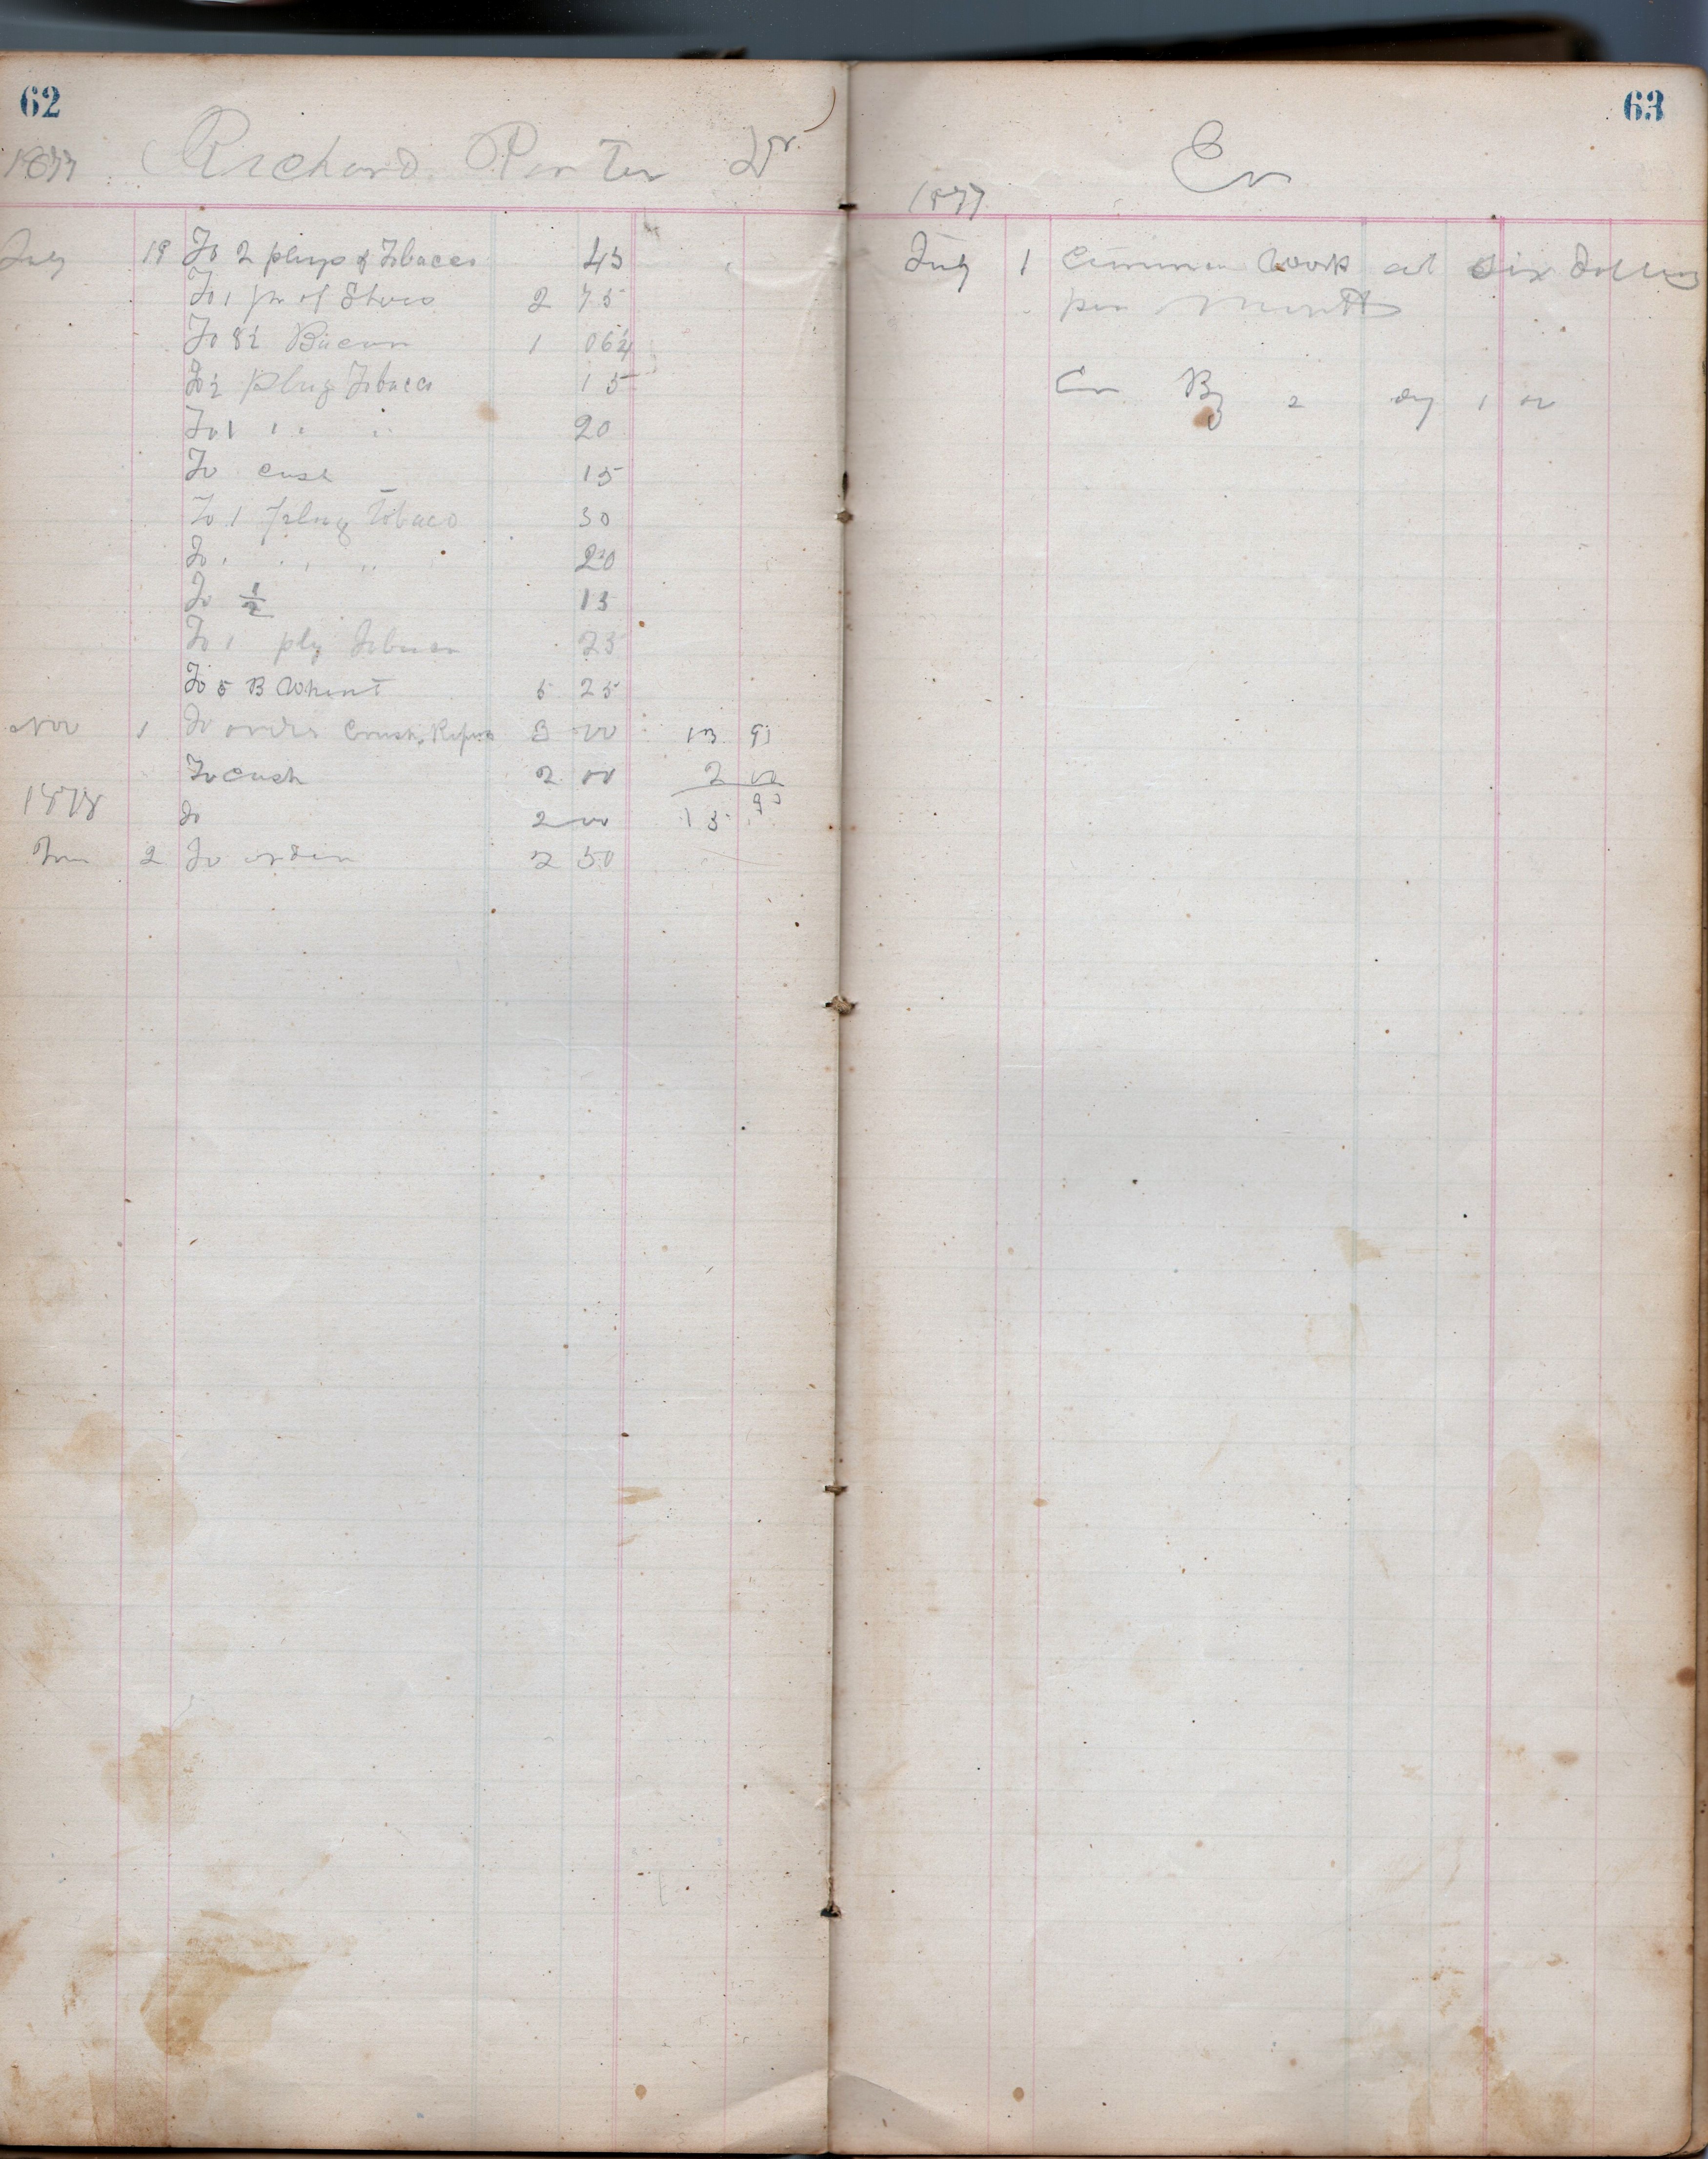 62
1877 Richard Porter Dr.
July 19 To 2 plugs of Tobacco 45
To 1 pr of Shoes 2 75
To 8½ Bacon 1 06¼
To ½ Plug Tobacco 15
To 1 " " 20
To cash 15
To 1 plug Tobaco 30
To " " " 20
To ½ 15
To 1 plg Tobacco 25
To 5 B Wheat 5 25
Nov 1 To order 3 00 13 91
To cash 2 00 2 00
1878
To 2 00 15 91
Jan 2 To order 2 50
63
Cr
1877
July 1 Commen Work at Six Dollars
per Month
Cr By 2 dy 1 00